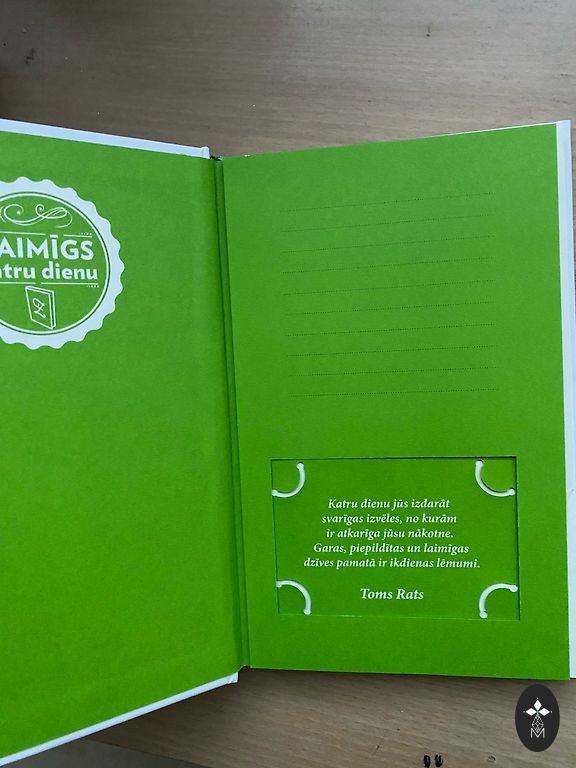 AIMĪGS
tru dienu
Katru dienu jūs izdarāt
svarīgas izvēles, no kurām
ir atkarīga jūsu nākotne.
Garas, piepildītas un laimīgas
dzīves pamatā ir ikdienas lēmumi.
Toms Rats
M